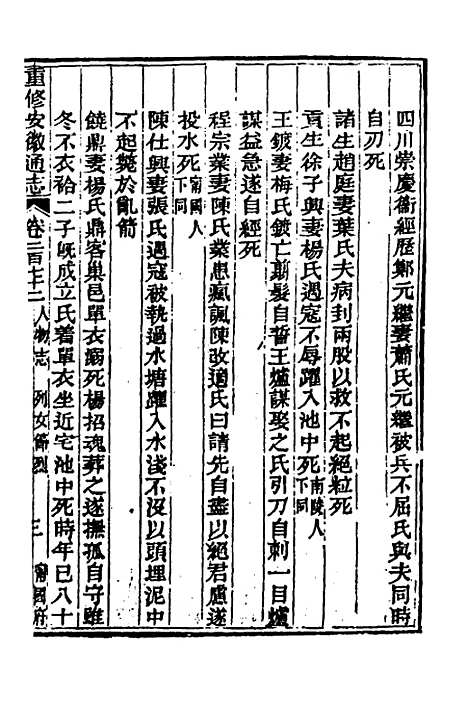 四川崇慶衞經歷鄭元繼妻蕭氏元繼被兵不屈氏與夫同時
自刃死
諸生趙庭妻葉氏夫病刲兩股以救不起絕粒死
貢生徐子興妻楊氏遇寇不辱躍入池中死南陵人下同
王鍍妻梅氏鍍亡翦髮自誓王爐謀娶之氏引刀自刺一目爐
謀益急遂自經死
程宗業妻陳氏業患瘋諷陳改適氏曰請先自盡以絕君慮遂
投水死甯國人下同
陳仕興妻張氏遇寇被執過水塘躍入水淺不沒以頭埋泥中
不起斃於亂箭
饒鼎妻楊氏鼎客巢邑單衣溺死楊招魂葬之遂撫孤自守雖
冬不衣袷二子旣成立氏着單衣坐近宅池中死時年已八十
重修安徽通志 卷二百七十二 人物志 列女節烈 三 甯國府